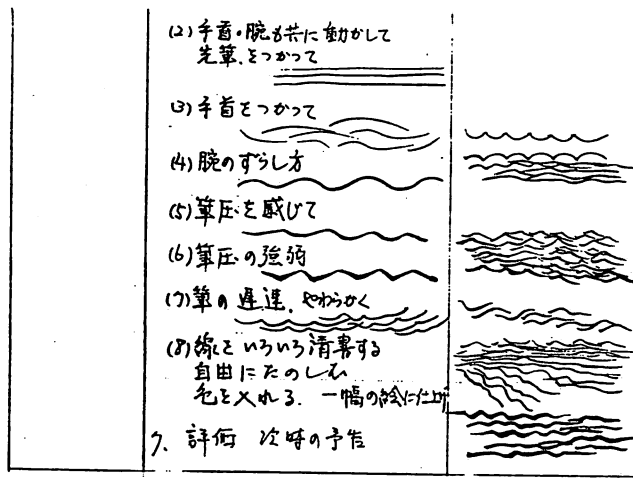 (2)手首・腕も共に動かして
先筆、をつかって
(3)手首をつかって
(4)腕のずらし方
(5)筆圧を感じて
(6)筆圧の強弱
(7)筆の遅速、やわらかく
(8)線をいろいろ清書する
自由にたのしむ
色を入れる. 一幅の絵に仕上げ
7、評価 次時の予告